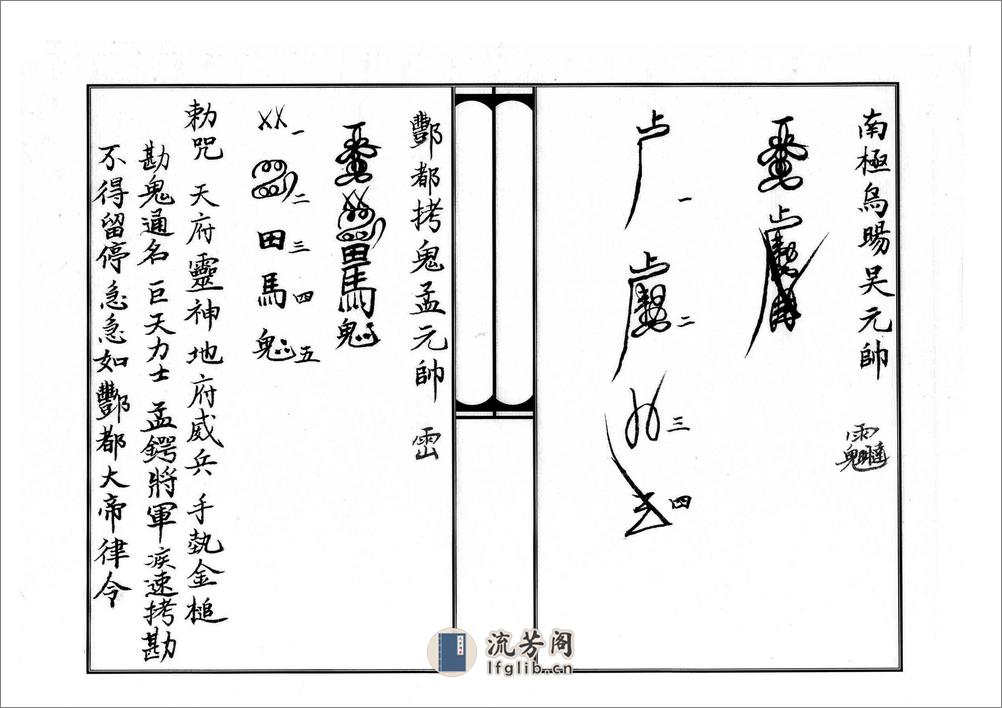 南極烏暘吴元帥
一
二
三
四
酆都拷鬼孟元帥 雷
一 二 三 四 五
田 馬 鬼
勅咒 天府靈神地府威兵 手執金槌
勘鬼通名 巨天力士 孟鍔將軍 疾速拷勘
不得留停急急如酆都大帝律令
流芳阁
lfglib.cn